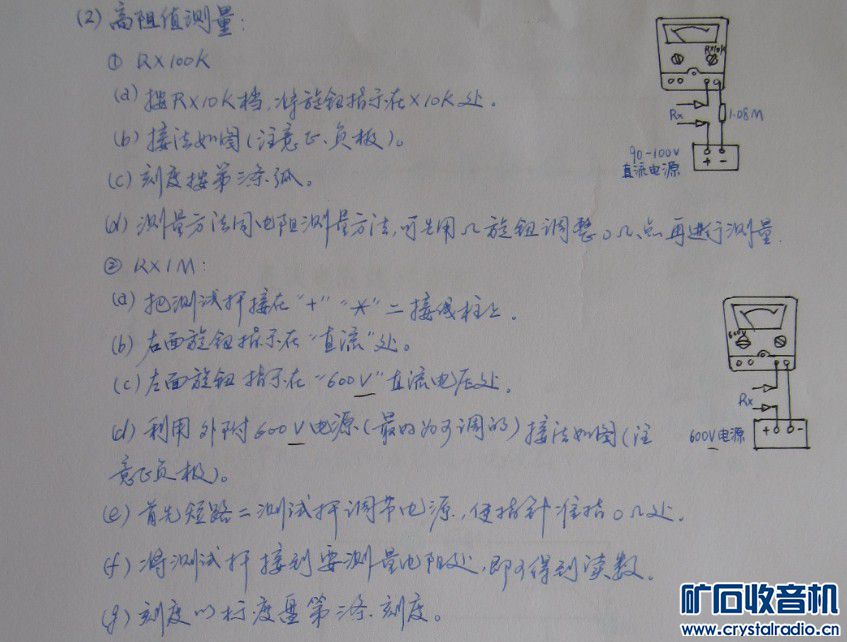 (2) 高阻值测量:
① RX100K
(a) 按RX10K档,将旋钮指示在X10K处.
(b) 接法如图(注意正、负极)。
(c) 刻度按第二条弧。
(d) 测量方法同电阻测量方法,可先用Ω旋钮调整0Ω点再进行测量.
② RX1M:
(a) 把测试杆接在"+" "*"二接线柱上.
(b) 右面旋钮指示在"直流"处。
(c) 左面旋钮指示在"600V"直流电压处.
(d) 利用外附600V电源(最好为可调的)接法如图(注
意正负极)。
(e) 首先短路二测试杆调节电源,使指针准指0Ω处.
(f) 将测试杆接到要测量电阻处,即可得到读数。
(g) 刻度以标度盘第二条刻度。
RX10K
Rx
1.08M
90-100V
直流电源
+ -
600V
Rx
600V电源
+ -
矿石收音机
www.crystalradio.cn